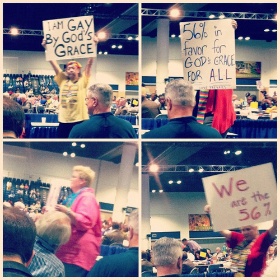 I AM GAY
By GOD'S
GRACE
56% in
favor for
GOD'S GRACE
FOR ALL
We
are the
56%